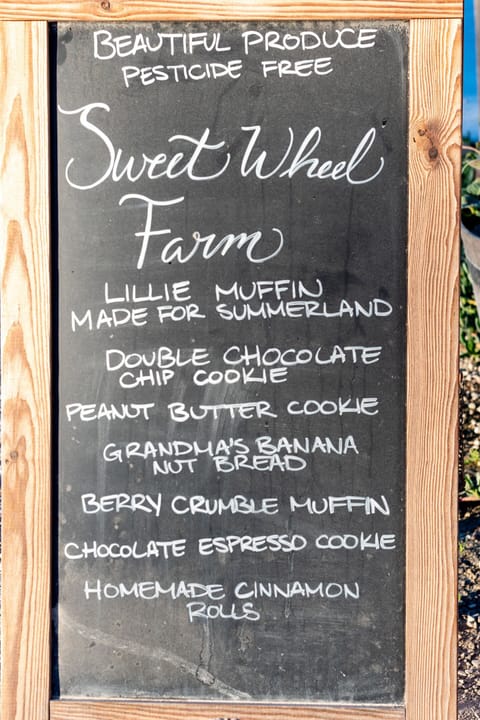 BEAUTIFUL PRODUCE
PESTICIDE FREE
Sweet Wheel
Farm
LILLIE MUFFIN
MADE FOR SUMMERLAND
DOUBLE CHOCOLATE
CHIP COOKIE
PEANUT BUTTER COOKIE
GRANDMA'S BANANA
NUT BREAD
BERRY CRUMBLE MUFFIN
CHOCOLATE ESPRESSO COOKIE
HOMEMADE CINNAMON
ROLLS